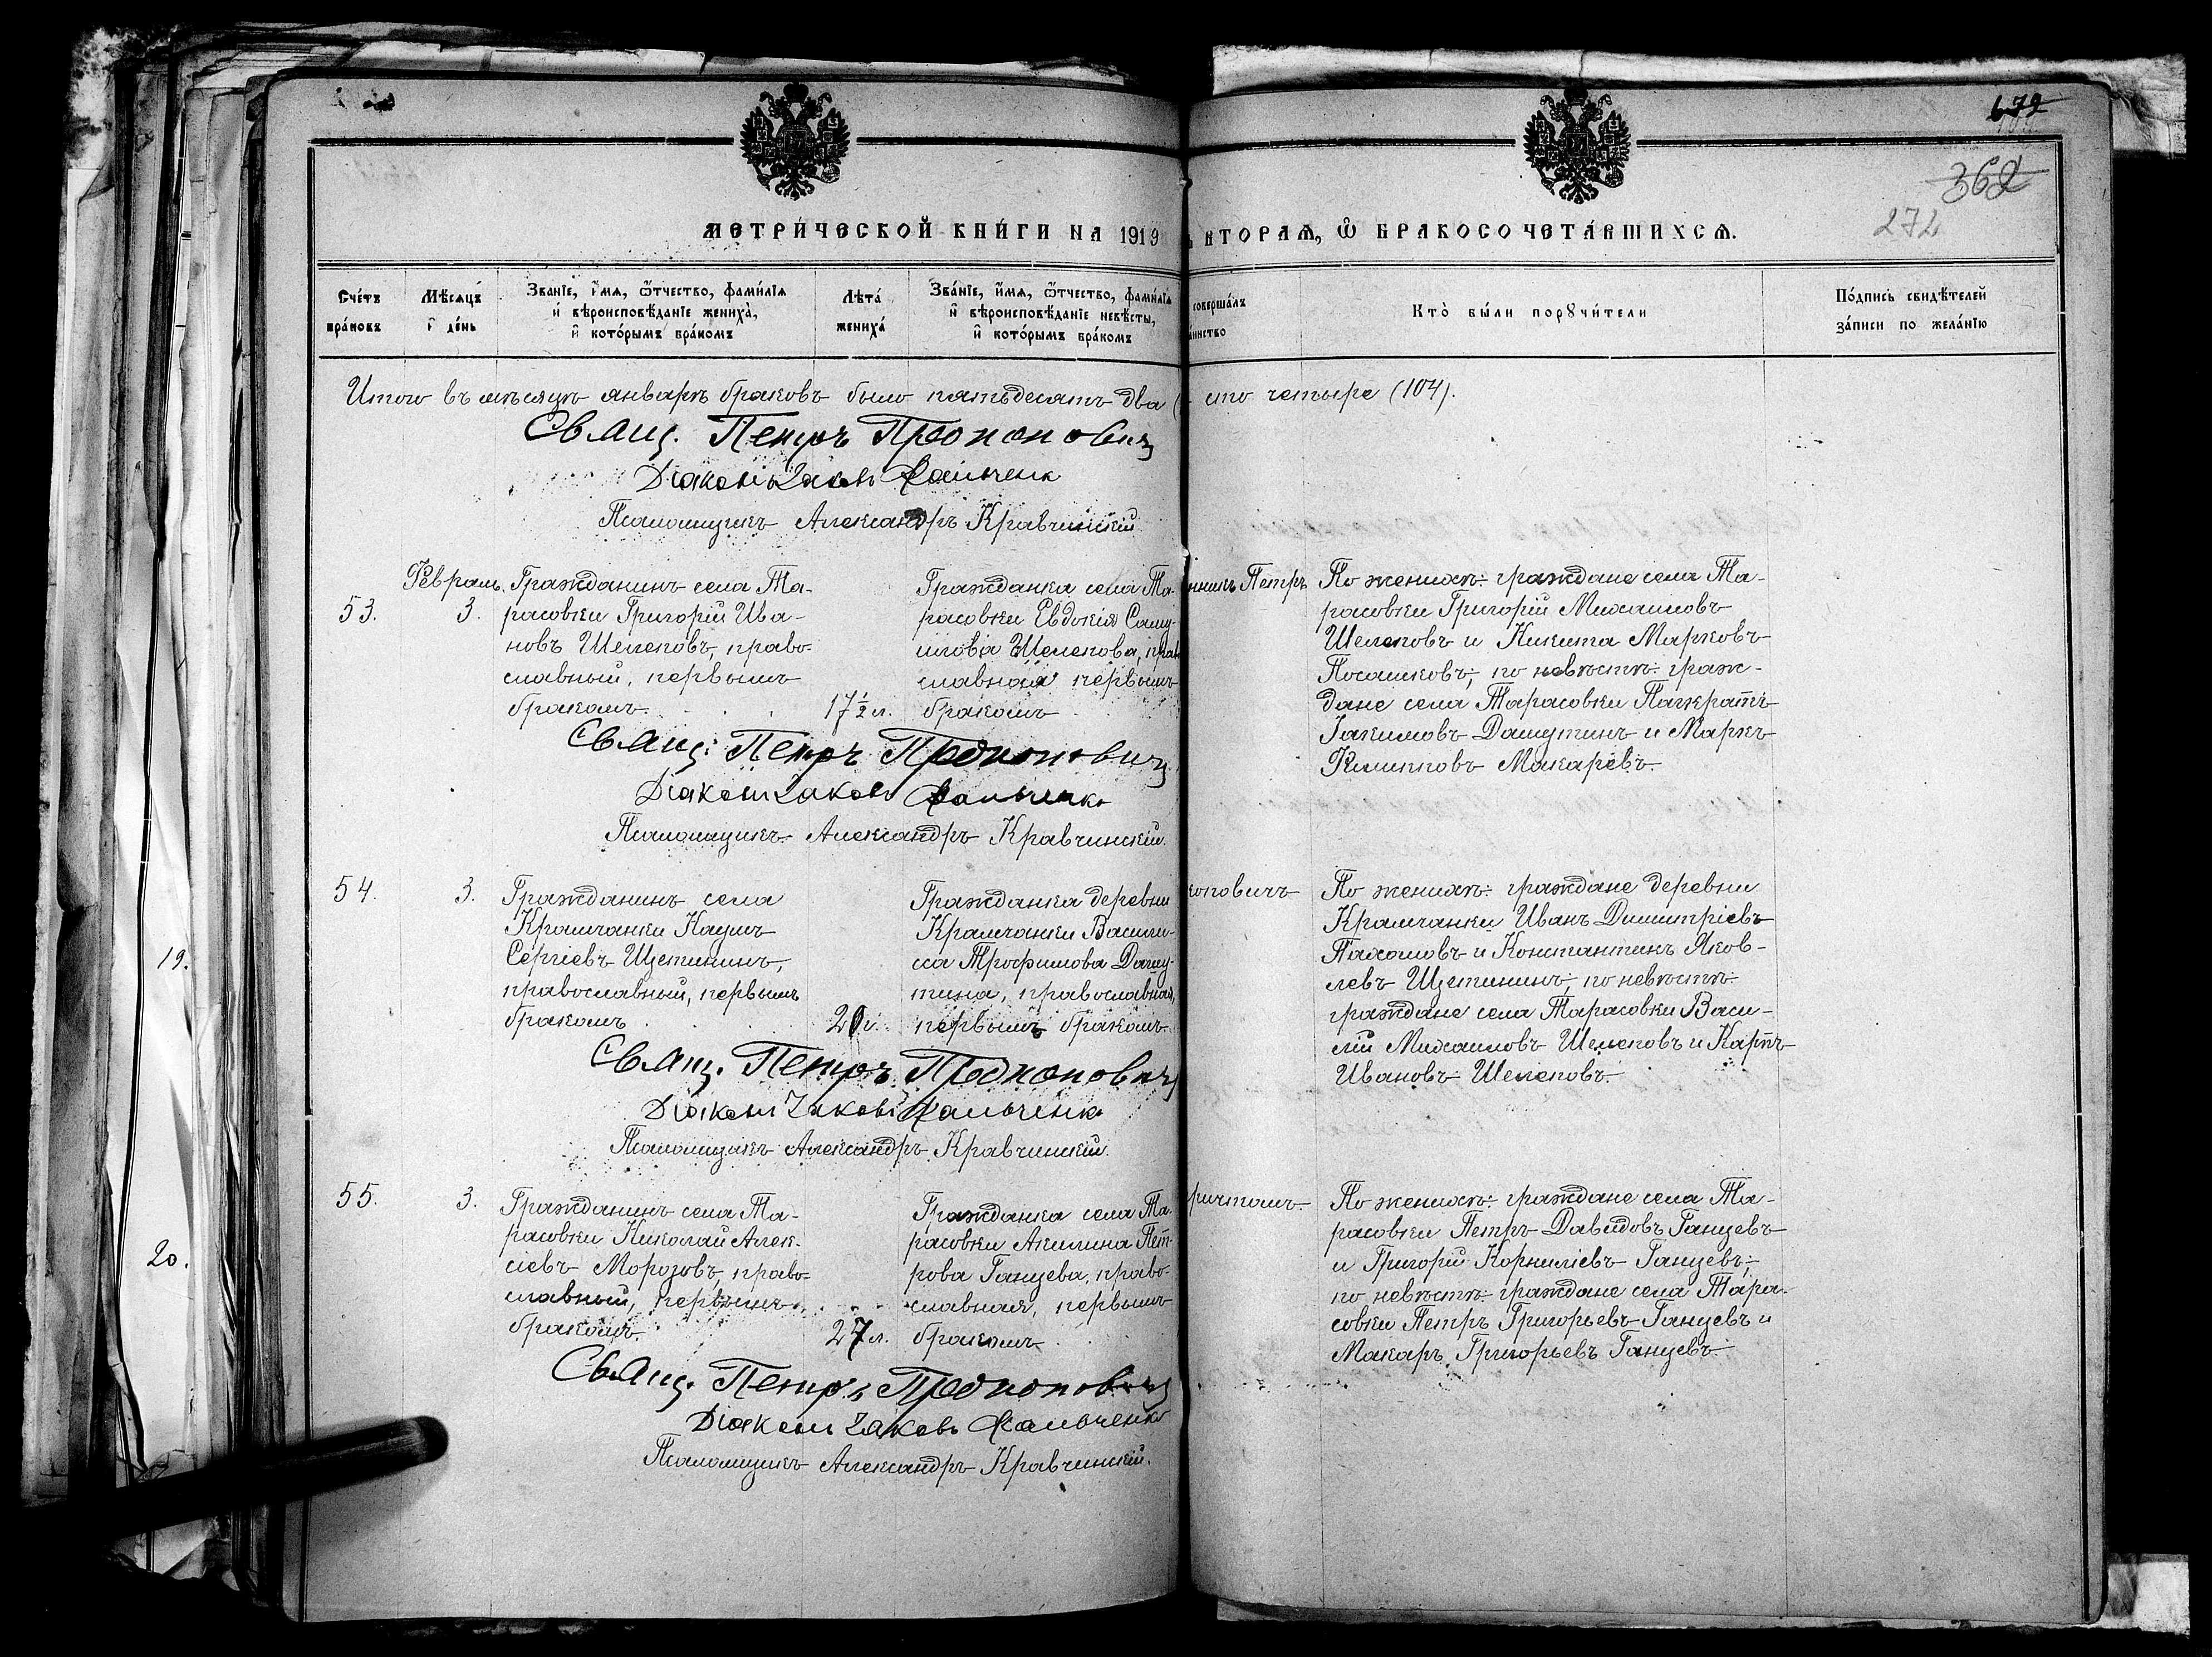 672
362
272
МЕТРИ́ЧЕСКОЙ КНИ́ГИ НА 1919
ВТОРАѦ, Ѽ БРАКОСОЧЕТА́ВШИХСѦ.
Сче́тъ бра́ковъ
Мѣ́сяцъ и де́нь
Зва́нїе, и́мя, ѻ҆́тчество, фами́лїя и вѣроисповѣ́данїе жениха̀, и кото́рымъ бра́комъ
Лѣта̀ жениха̀
Зва́нїе, и́мя, ѻ҆́тчество, фами́лїя и вѣроисповѣ́данїе невѣ́сты, и кото́рымъ бра́комъ
соверша́лъ
Кто̀ бы́ли порꙋчи́тели
По́дпись свидѣ́телей за́писи по жела́нїю
Итого въ мѣсяцѣ январѣ браковъ было пятьдесятъ два
сто четыре (104).
Свящ. Петръ Прокоповичъ
Діаконъ Іаковъ
Псаломщикъ Александръ Кравчинскій
53.
Февраль
3.
Гражданинъ села Та-
расовки Григорій Ива-
новъ Шелеповъ, право-
славный, первымъ
бракомъ.
17½ л.
Гражданка села Та-
расовки Евдокія Саму-
илова Шелепова, прав
славная первымъ
бракомъ
Петръ
По женихѣ: граждане села Та-
расовки Григорій Михаиловъ
Шелеповъ и Никита Марковъ
Посашковъ; по невѣстѣ: граж-
дане села Тарасовки Панкратъ
Іакимовъ Дашутинъ и Маркъ
Филипповъ Макаревъ.
Свящ. Петръ Прокоповичъ
Діаконъ Іаковъ
Псаломщикъ Александръ Кравчинскій.
54.
3.
Гражданинъ села
Крамчанки Наумъ
Сергіевъ Щетининъ,
православный, первымъ
бракомъ
Гражданка деревни
Крамчанки Васили-
са Трофимова Дашу-
тина, православная,
первымъ бракомъ.
коповичъ
По женихѣ: граждане деревни
Крамчанки Иванъ Димитріевъ
Пахомовъ и Константинъ Яков-
левъ Щетининъ; по невѣстѣ:
граждане села Тарасовки Васи-
лій Михаиловъ Шелеповъ и Карпъ
Ивановъ Шелеповъ.
Свящ. Петръ Прокоповичъ
Діаконъ Іаковъ
Псаломщикъ Александръ Кравчинскій.
55.
3.
Гражданинъ села Та-
расовки Николай Алек-
сіевъ Морозовъ, право-
славный, первымъ
бракомъ.
27 л.
Гражданка села Та-
расовки Акилина Пет-
рова Ганцева, право-
славная, первымъ
бракомъ
ричтомъ
По женихѣ: граждане села Та-
расовки Петръ Давидовъ Ганцевъ
и Григорій Корниліевъ Ганцевъ;
по невѣстѣ: граждане села Тара-
совки Петръ Григорьевъ Ганцевъ и
Макаръ Григорьевъ Ганцевъ.
Свящ. Петръ Прокоповичъ
Діаконъ Іаковъ
Псаломщикъ Александръ Кравчинскій.
19.
20.